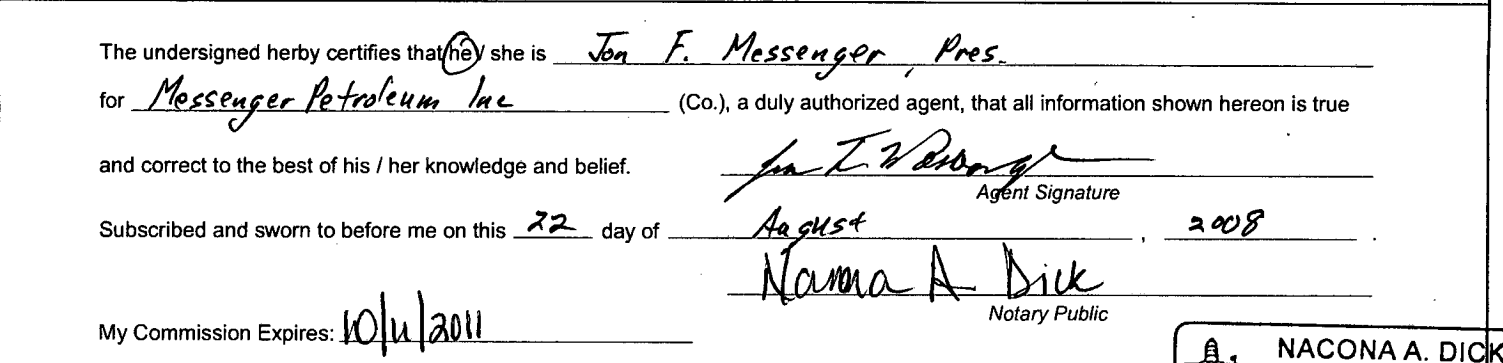 The undersigned herby certifies that he / she is Jon F. Messenger, Pres.
for Messenger Petroleum Inc (Co.), a duly authorized agent, that all information shown hereon is true
and correct to the best of his / her knowledge and belief.
Agent Signature
Subscribed and sworn to before me on this 22 day of August, 2008.
A Dick
Notary Public
My Commission Expires: 10/11/2011
NACONA A. DICK